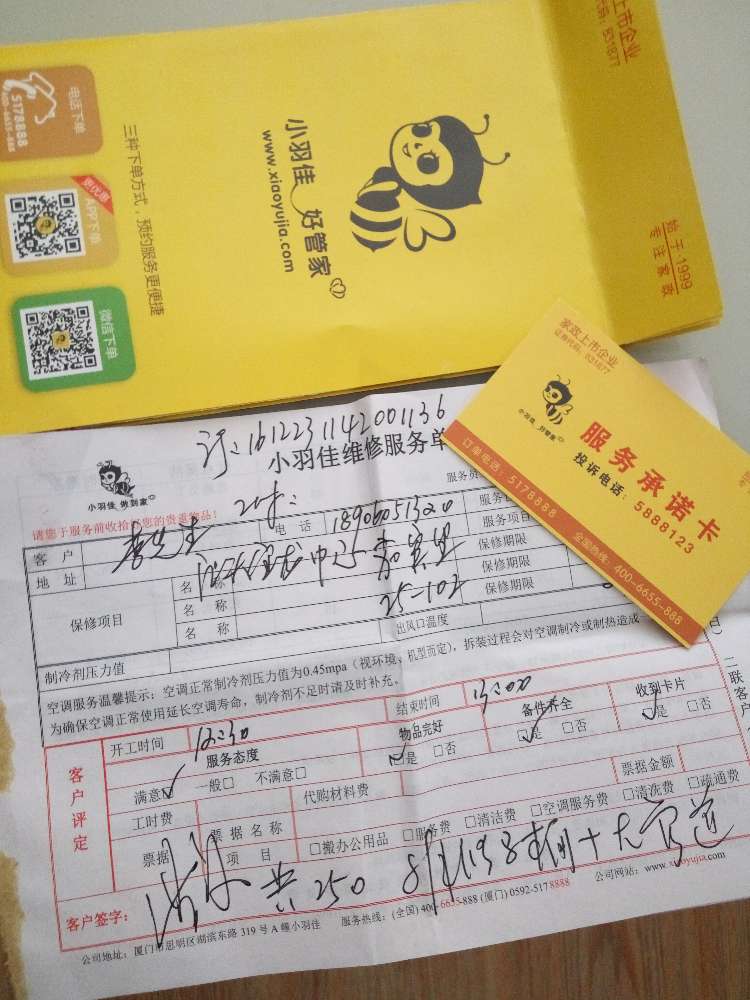 上市企业
代码: 831877
电话下单
5178888
400-6655-888
更优惠
APP下单
微信下单
三种下单方式, 预约服务更便捷
小羽佳 好管家
www.xiaoyujia.com
始于1999
专注家政
家政上市企业
证券代码: 831877
小羽佳 好管家
服务承诺卡
投诉电话: 5888123
订单电话: 5178888
全国热线: 400-6655-888
1612231142001136
小羽佳维修服务单
小羽佳 做到家
请您于服务前收拾好您的贵重物品!
服务员
客户
电话
服务
地址
服务项目
保修项目
名称
保修期限
名称
25-102
保修期限
名称
出风口温度
保修期限
制冷剂压力值
空调服务温馨提示: 空调正常制冷剂压力值为0.45mpa (视环境、机型而定), 拆装过程会对空调制冷或制热造成
为确保空调正常使用延长空调寿命, 制冷剂不足时请及时补充。
二联客户
客户评定
开工时间 12:30
结束时间 13:00
服务态度
物品完好
备件齐全
收到卡片
满意☑ 一般□ 不满意□
☑是 □否
☑是 □否
☑是 □否
工时费
代购材料费
票据金额
票据
票据名称
项目
□搬办公用品 □服务费 □清洁费 □空调服务费 □清洗费 □疏通费
共250
客户签字:
公司网站: www.xiaoyujia.com
公司地址: 厦门市思明区湖滨东路319号A幢小羽佳
服务热线: (全国) 400-6655-888 (厦门) 0592-5178888